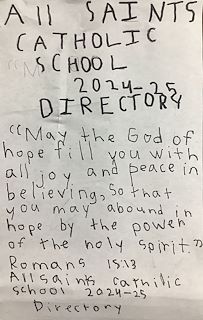 All SAINTS
CATHOLIC
SCHOOL
2024-25
DIRECTORY
"May the God of
hope fill you with
all joy and peace in
believing, so that
you may abound in
hope by the power
of the holy spirit."
Romans 15:13
All saints cathilic
school 2024-25
Directory